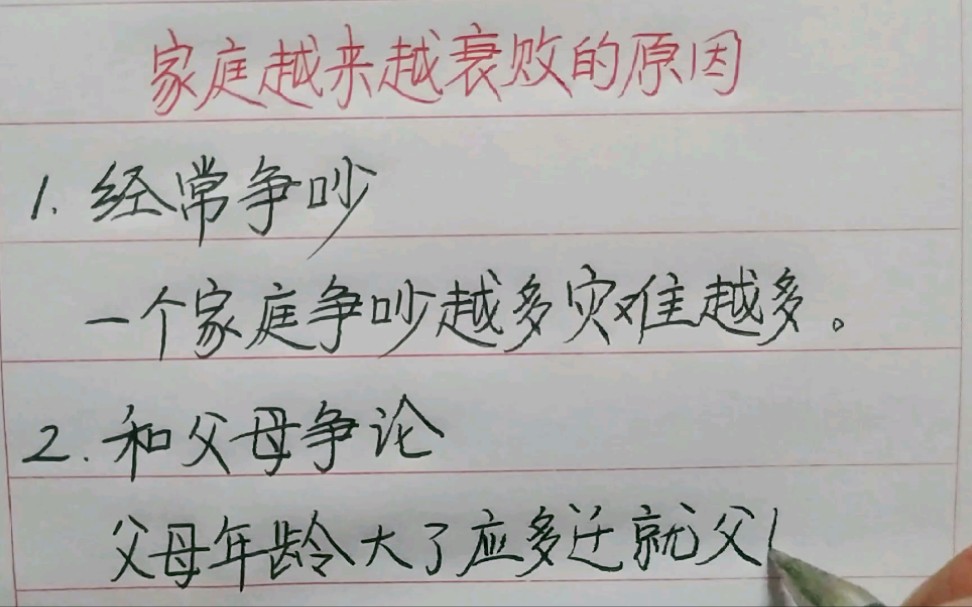 家庭越来越衰败的原因
1. 经常争吵
一个家庭争吵越多灾难越多。
2. 和父母争论
父母年龄大了应多迁就父